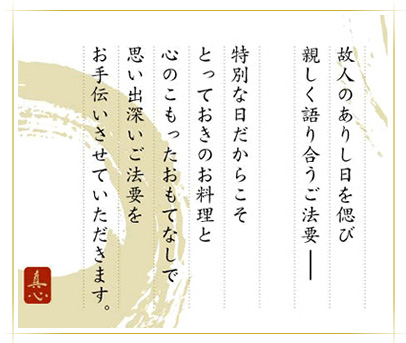 故人のありし日を偲び
親しく語り合うご法要──
特別な日だからこそ
とっておきのお料理と
心のこもったおもてなしで
思い出深いご法要を
お手伝いさせていただきます。
真心